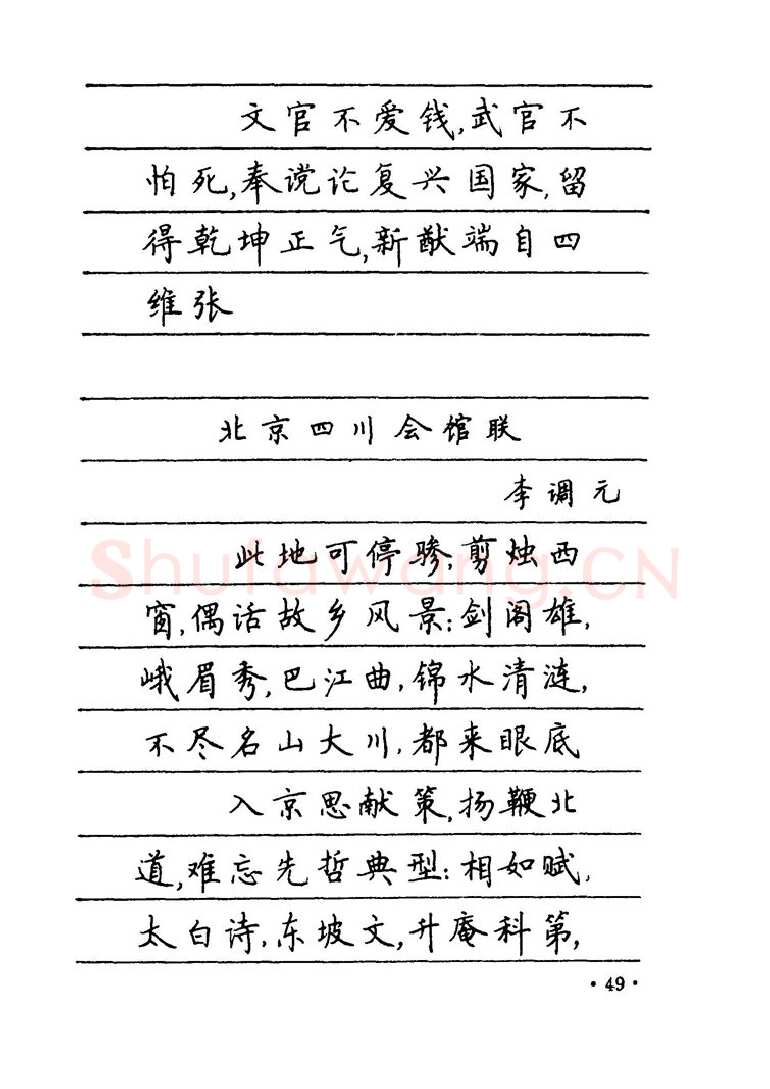 文官不爱钱,武官不
怕死,奉谠论复兴国家,留
得乾坤正气,新猷端自四
维张
北京四川会馆联
李调元
此地可停骖,剪烛西
窗,偶话故乡风景:剑阁雄,
峨眉秀,巴江曲,锦水清涟,
不尽名山大川,都来眼底
入京思献策,扬鞭北
道,难忘先哲典型:相如赋,
太白诗,东坡文,升庵科第,
·49·
Shufawang.CN